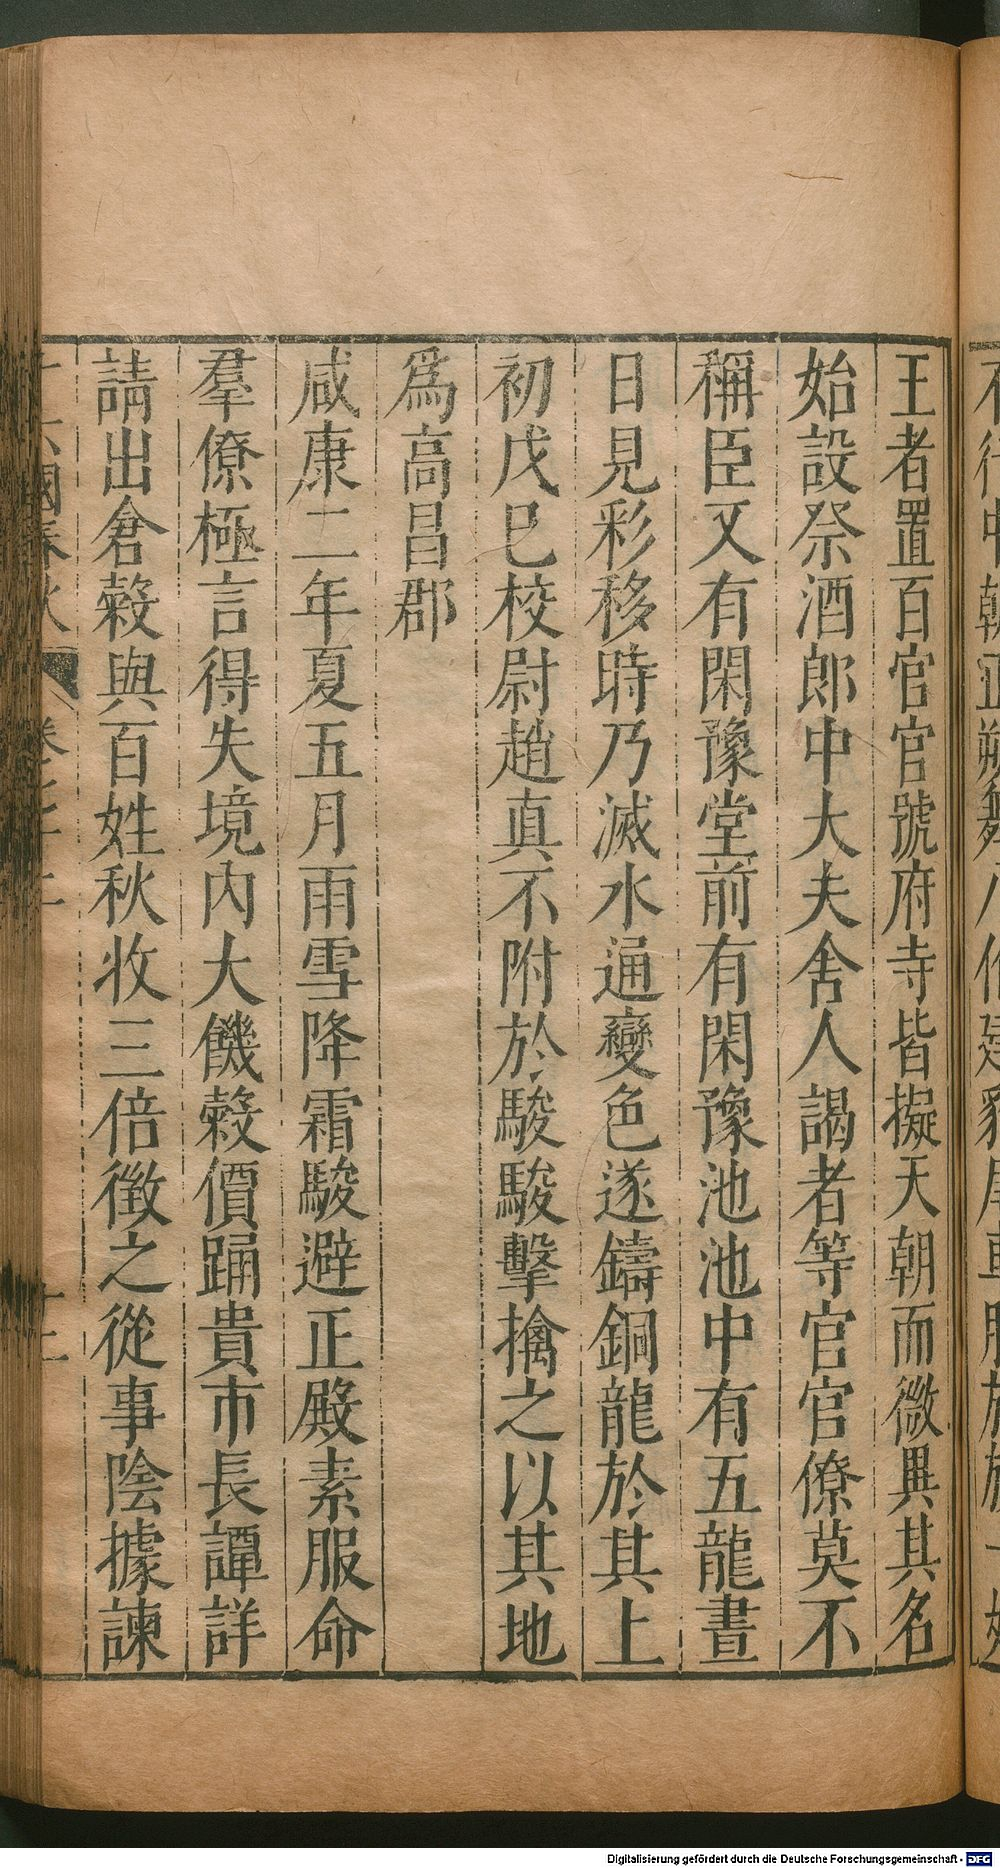 王者置百官官號府寺皆擬天朝而微異其名
始設祭酒郎中大夫舍人謁者等官官僚莫不
稱臣又有閑豫堂前有閑豫池池中有五龍晝
日見彩移時乃滅水通變色遂鑄銅龍於其上
初戊巳校尉趙真不附於駿駿擊擒之以其地
爲高昌郡
咸康二年夏五月雨雪降霜駿避正殿素服命
羣僚極言得失境内大饑穀價踊貴市長譚詳
請出倉穀與百姓秋收三倍徵之從事陰據諫
國春秋
Digitalisierung gefördert durch die Deutsche Forschungsgemeinschaft - DFG